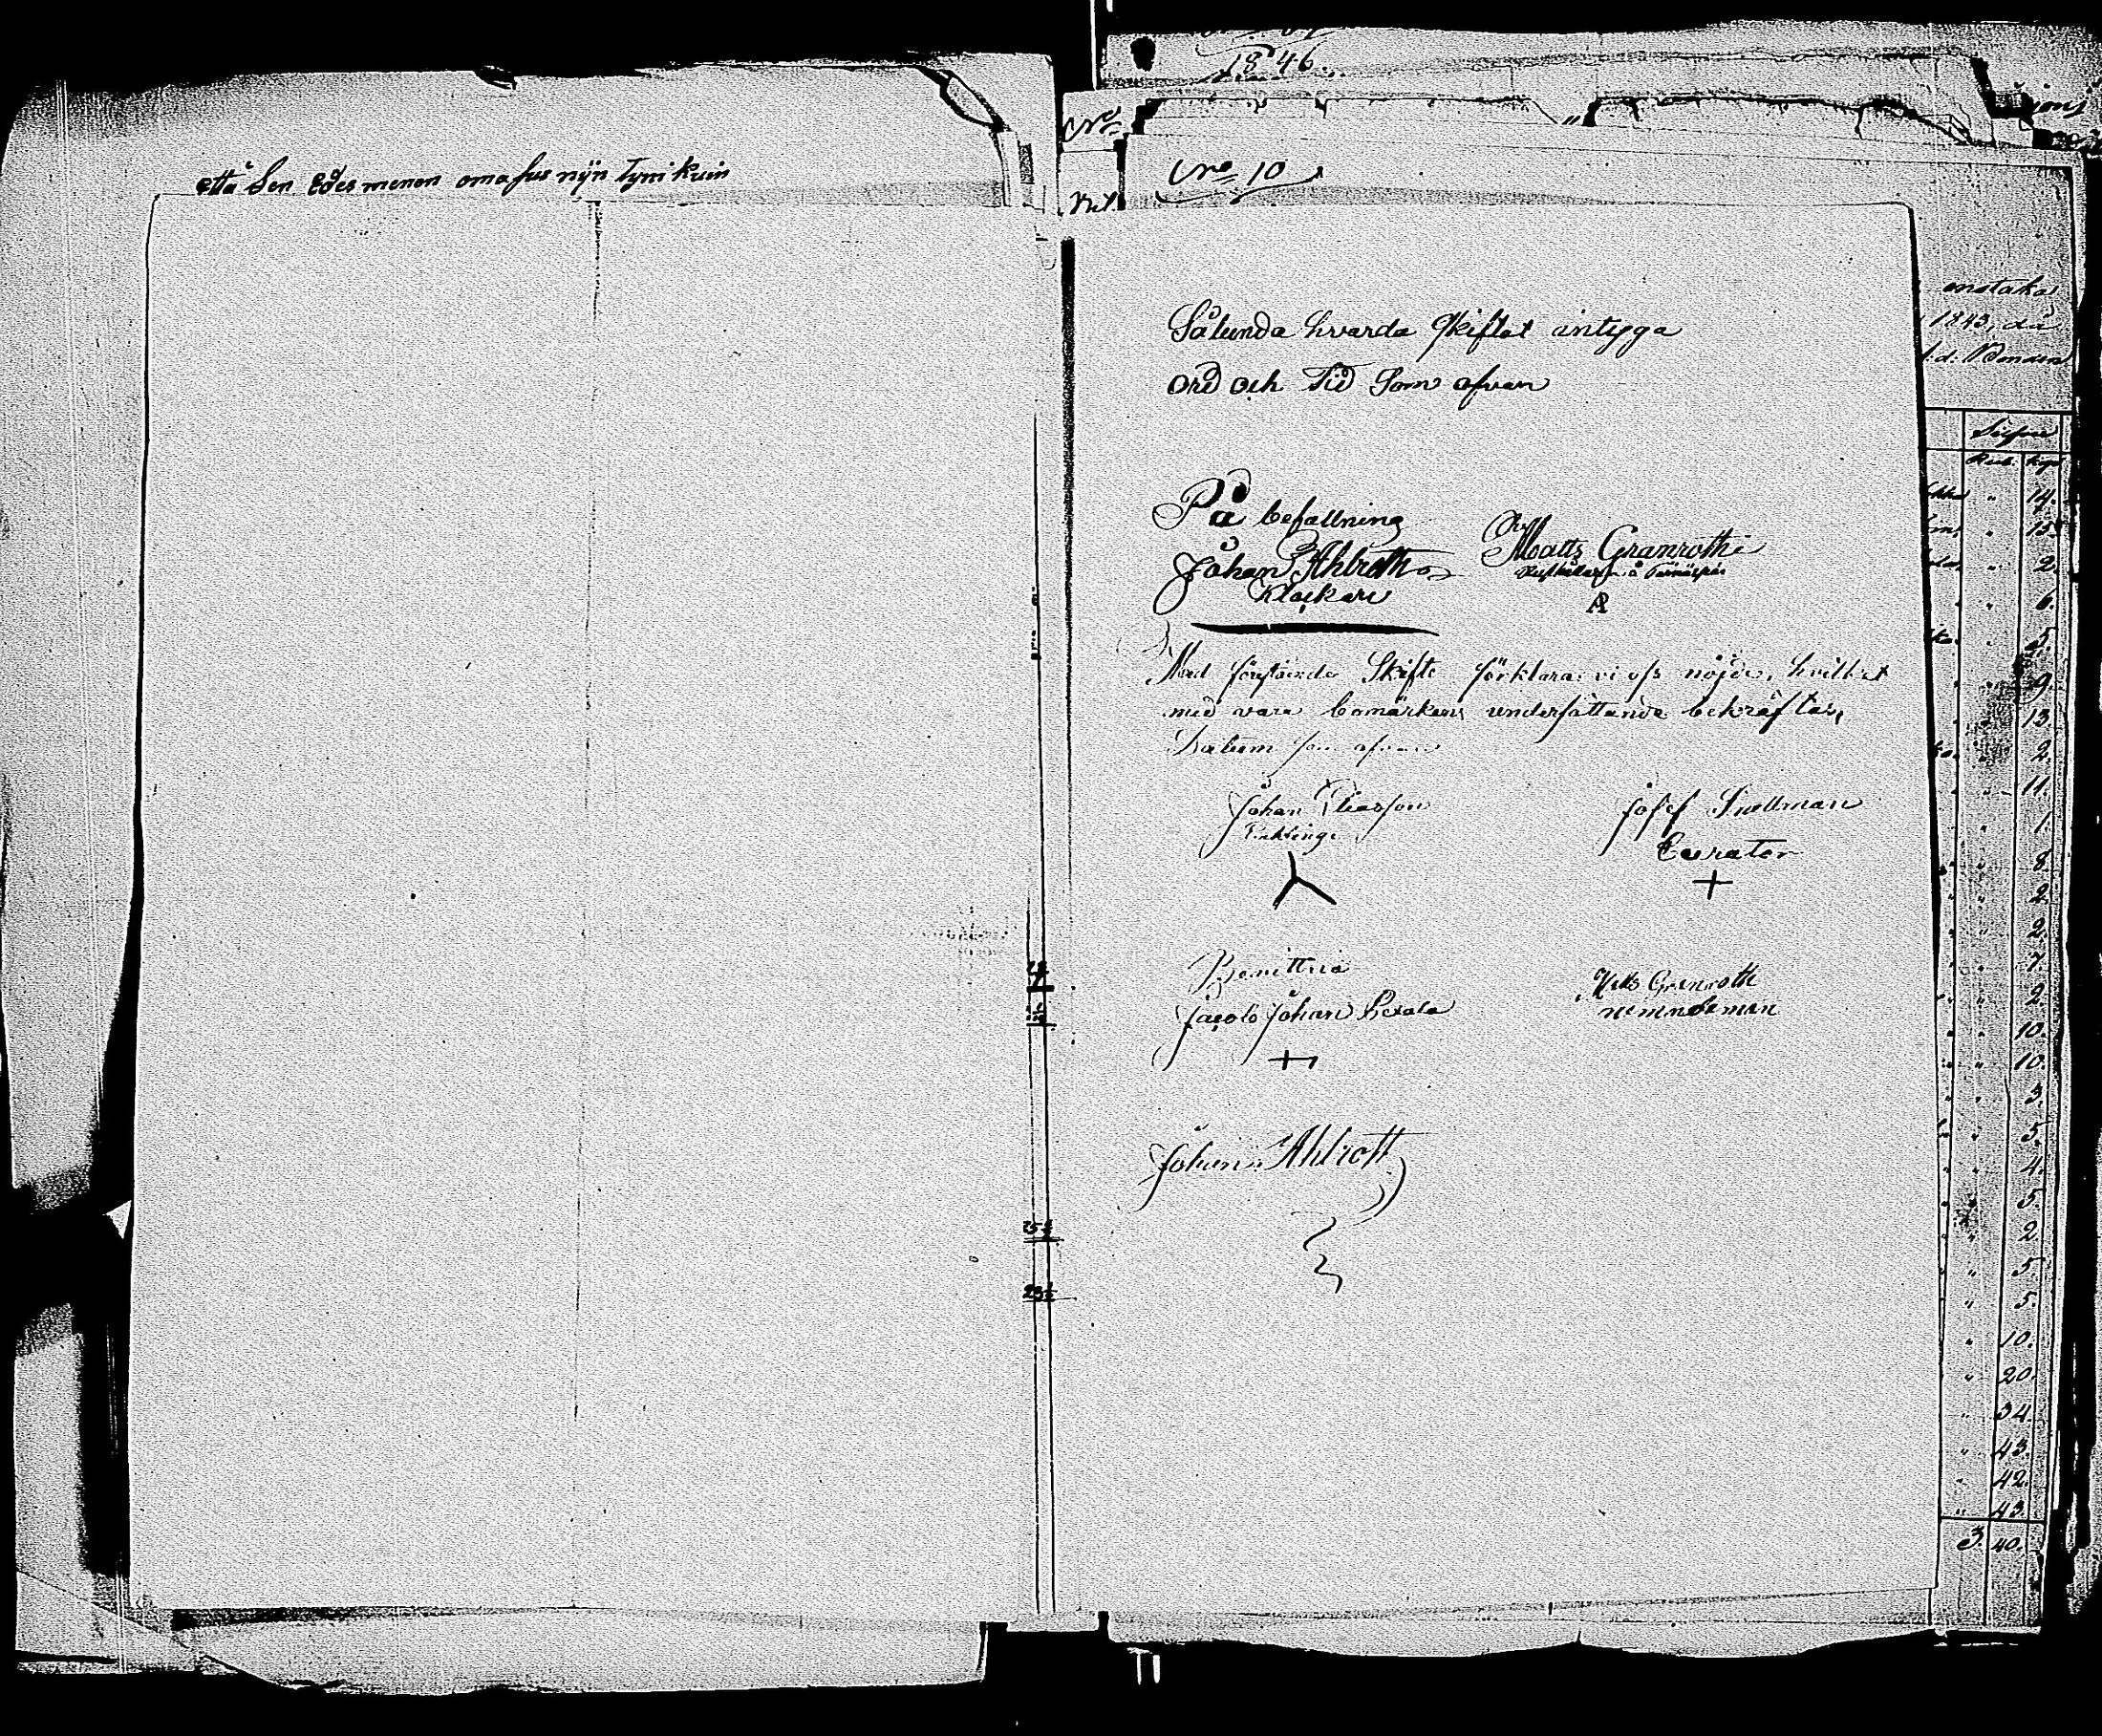 että Sen Edesmenen omasus nijn tyni kuin
1846.
No
No 10
Sålunda hvarda Skiftet intyga
ord och Tid Som ofvan
På befallning
Johan Ahlroth
Klockare
Matts Granroth
Med förestående Skifte förklara vi oss nöjde, hvilket
med våra bomärkens undersättande bekräftas,
Datum som ofvan
Johan Eliasson
Enklinge
Josef Snellman
Curator
Jacob Johan
Matts Granroth
nämndeman
Johan Ahlroth
enstaka
1843, då
Bonden
Silfver
Rub. kop
14.
15.
2.
6.
5.
9.
13.
2.
11.
1.
8.
2.
2.
7.
2.
10.
10.
3.
5.
4.
5.
2
5.
5.
10.
20.
34.
43.
42.
43.
3. 40.